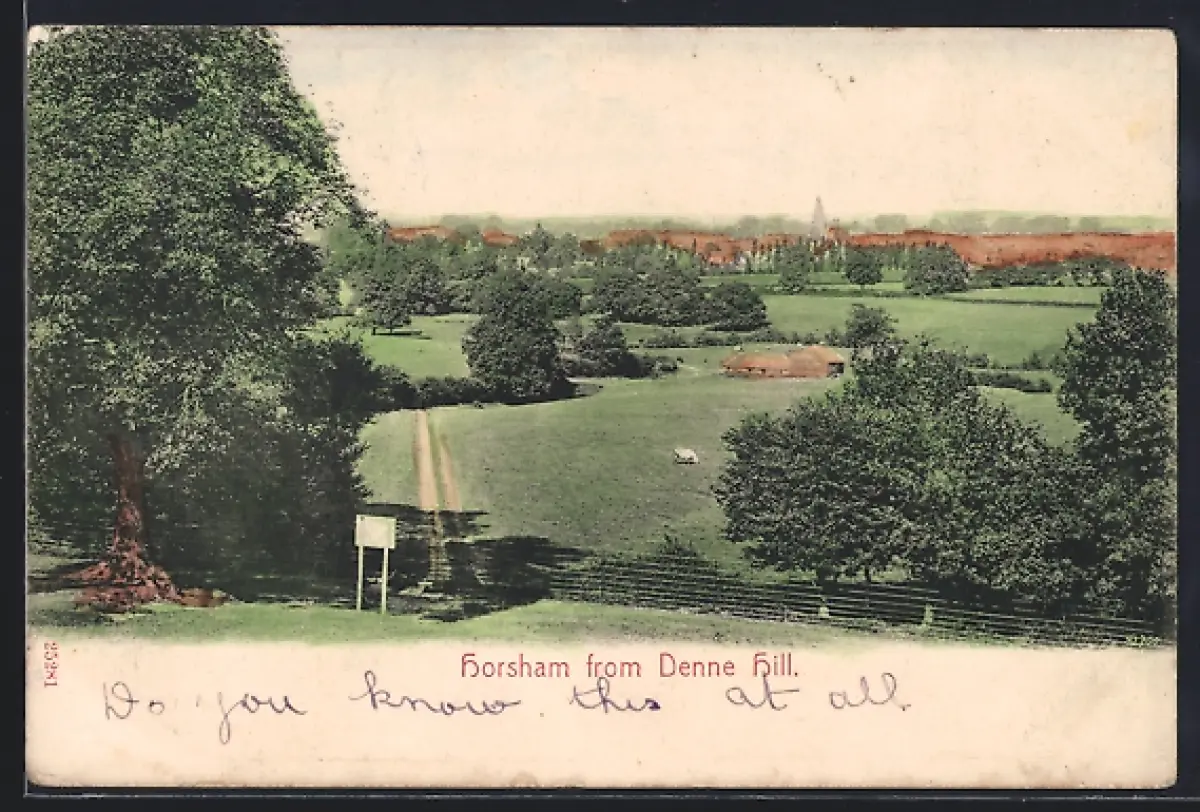 Horsham from Denne Hill.
25281
Do you know this at all